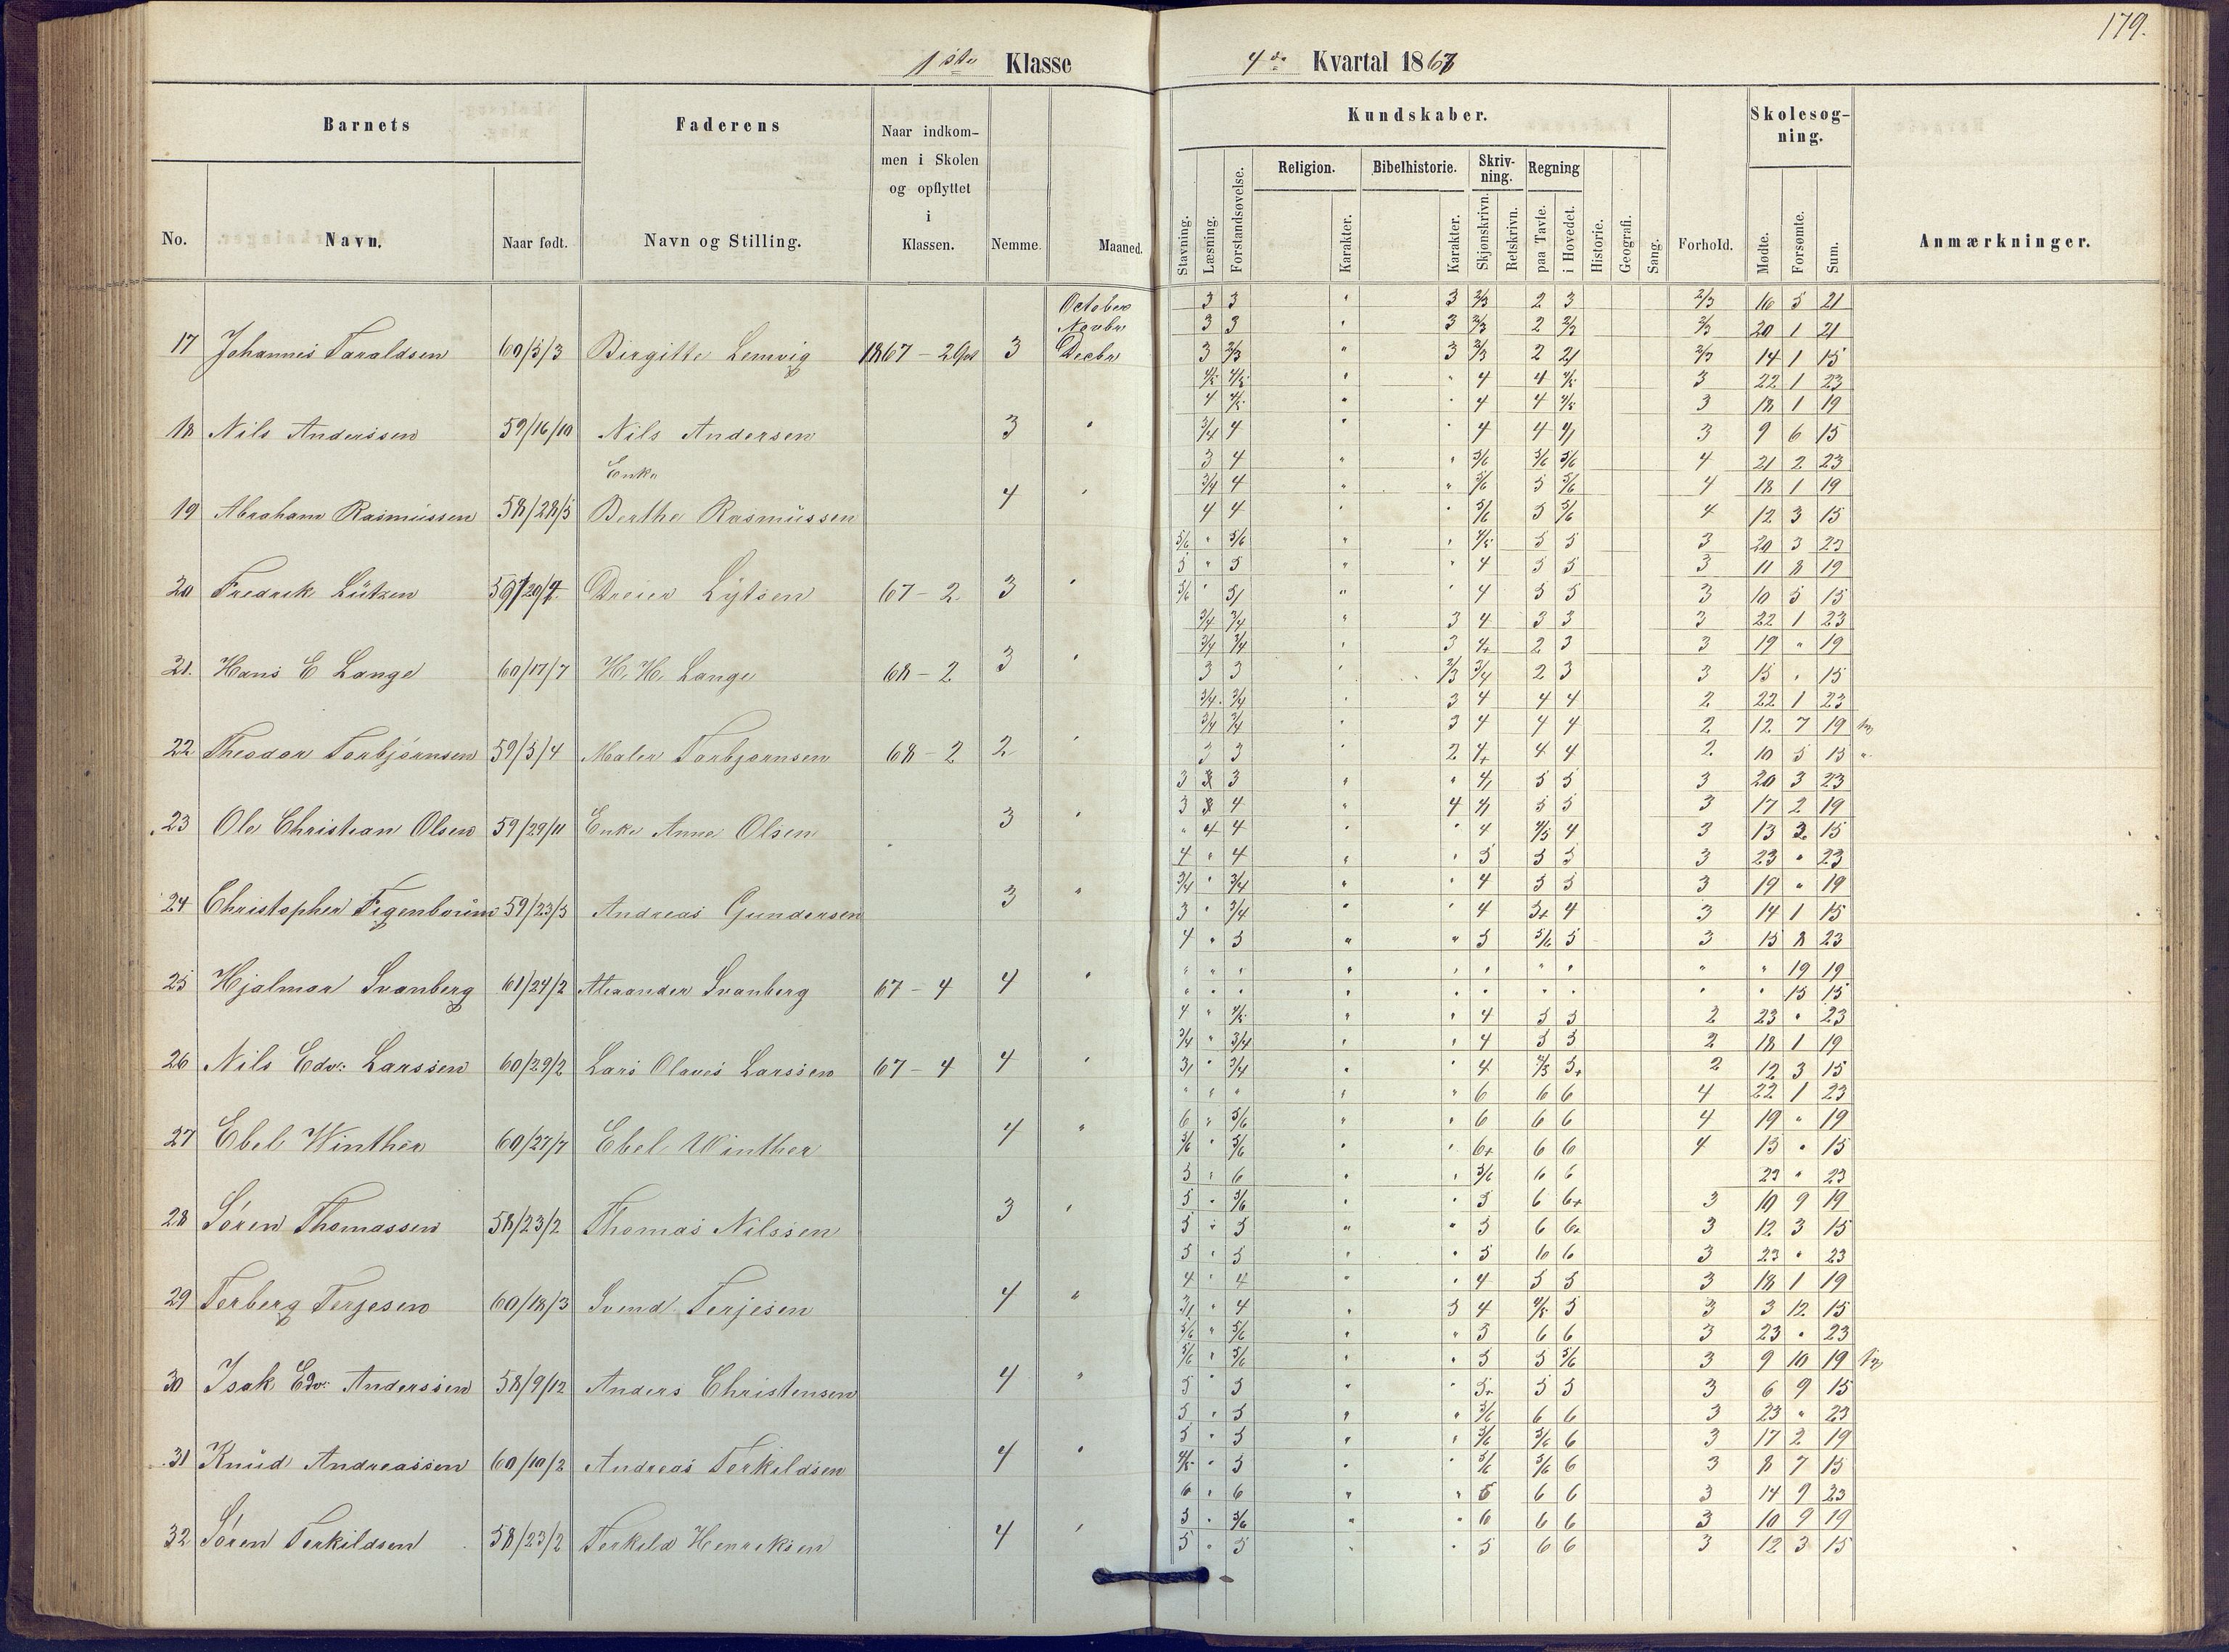 179.
1ste Klasse 4de Kvartal 1867
Barnets Faderens Naar indkommen i Skolen og opflyttet i Klassen. Nemme. Maaned. Kundskaber. Forhold. Skolesogning. Anmærkninger.
No. Navn. Naar født. Navn og Stilling. Stavning. Læsning. Forstandsøvelse. Religion. Karakter. Bibelhistorie. Karakter. Skrivning. Skjønskrivn. Retskrivn. Regning paa Tavle. i Hovedet. Historie. Geografi. Sang. Mødte. Forsømte. Sum.
October 3 3 " 3 2/3 2 3 2/3 16 5 21
Novbr 3 3 " 3 2/3 2 2/3 2/3 20 1 21
17 Johannes Taraldsen 60/5/3 Birgitte Lemvig 1867 - 2 3 Decbr 3 2/3 " 3 2/3 2 2/3 14 1 15
4/5 4/5 " " 4 4 4/5 3 22 1 23
4 4/5 " " 4 4 4/5 3 18 1 19
18 Nils Anderssen 59/16/10 Nils Andersen 3 " 3/4 4 " " 4 4 3 9 6 15
3 4 " " 5/6 5/6 5/6 4 21 2 23
Enke
3/4 4 " " 5/6 5 5/6 4 18 1 19
19 Abraham Rasmussen 58/28/5 Berthe Rasmüssen 4 " 4 4 " " 5/6 5 5/6 4 12 3 15
5/6 " 5/6 " " 4/5 5 5 3 20 3 23
5 " 5 " " 4 5 5 3 11 8 19
20 Fredrik Lützen Dreier Lytsen 67 - 2 3 " 5/6 " " " 4 5 5 3 10 5 15
3/4 3/4 " 3 4 3 3 3 22 1 23
3/4 3/4 " 3 4+ 2 3 3 19 " 19
21. Hans E Lange 60/17/7 H. H. Lange 68 - 2 3 " 3 3 " 2/3 3/4 2 3 3 15 " 15
3/4 3/4 " 3 4 4 4 2 22 1 23
3/4 3/4 " 3 4 4 4 2 12 7 19
22 Theodor Torbjørnsen 59/5/4 Maler Torbjørnsen 68 - 2 2 " 3 3 " 2 4+ 4 4 2 10 5 15 "
3 3 " " 5 5 3 20 3 23
3 4 " 4 5 5 3 17 2 19
23 Ole Christian Olsen 59/29/11 Enke Anne Olsen 3 " " 4 4 " " 4 4/5 4 3 13 2 15
4 " 4 " " 5 5 5 3 23 " 23
3/4 " 3/4 " " 4 5 5 3 19 " 19
24 Christopher 59/23/5 Andreas Gundersen 3 " 3 " 3/4 " " 4 5+ 4 3 14 1 15
4 " 5 " " 5 5/6 5 3 15 8 23
" " " " " " " " " " 19 19
25 Hjalmar Svanberg 61/24/2 Alexander Svanberg 67 - 4 4 " " " " " " " " " " " 15 15
4 " 4/5 " " 4 5 5 2 23 " 23
3/4 " 3/4 " " 4 5 5 2 18 1 19
26 Nils Edv: Larssen 60/29/2 Lars Olaves Larssen 67 - 4 4 " " 3/4 " " 4 4/5 5+ 2 12 3 15
" " " " " 6 6 6 4 22 1 23
6 " 5/6 " " 6 6 6 4 19 " 19
27 Ebel Winther 60/27/7 Ebel Winther 4 " 5/6 " 5/6 " " 6+ 6 6 4 15 " 15
5 " 6 " " 5/6 6 6 23 " 23
5 " 5/6 " " 5 6 6+ 3 10 9 19
28 Søren Thomassen 58/23/2 Thomas Nilssen 3 " 5 " 5 " " 5 6 6+ 3 12 3 15
5 " 5 " " 5 6 6 3 23 " 23
4 " 4 " " 4 5 5 3 18 1 19
29 Terberg Terjesen 60/18/3 Svend Terjesen 4 " " 4 " 5 4 4/5 5 3 3 12 15
5/6 " 5/6 " " 5 6 6 3 23 " 23
5/6 " 5/6 " " 5 5 5/6 3 9 10 19
30 Isak Edv: Anderssen 58/9/12 Anders Christensen 4 " 5 " 5 " " 5+ 5 5 3 6 9 15
5 " 5 " " 5/6 6 6 3 23 " 23
5 " 5 " " 5/6 5/6 6 3 17 2 19
31 Knüd Andreassen 60/10/2 Andreas Terkildsen 4 " 4/5 " 5 " " 5/6 5/6 6 3 8 7 15
6 " 6 " " 5 6 6 3 14 9 23
5 " 5/6 " " 6 6 6 3 10 9 19
32 Søren Terkildsen 58/23/2 Terkild Henriksen 4 " 5 " 5 " " 5 6 6 3 12 3 15